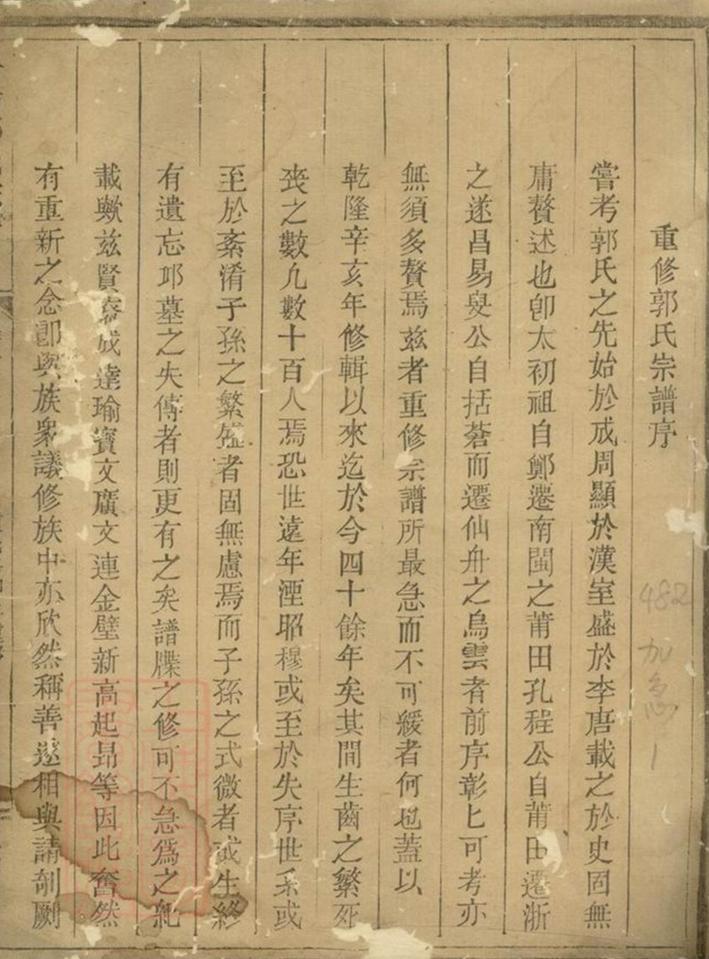 重修郭氏宗譜序
嘗考郭氏之先始於成周顯於漢室盛於李唐載之於史固無
庸贅述也卽太初祖自鄭遷南閩之莆田孔程公自莆田遷浙
之遂昌易叟公自括蒼而遷仙舟之烏雲者前序彰匕可考亦
無須多贅焉兹者重修宗譜所最急而不可緩者何也蓋以
乾隆辛亥年修輯以來迄於今四十餘年矣其間生齒之繁死
喪之數凢數十百人焉恐世遠年湮昭穆或至於失序世系或
至於紊淆子孫之繁盛者固無慮焉而子孫之式微者或生終
有遺忘邱墓之失傳者則更有之矣譜牒之修可不急爲之紀
載歟兹賢成達瑜寶文廣文連金璧新高起昂等因此奮然
有重新之念卽與族衆議修族中亦欣然稱善遂相與請剞劂
482
加急1